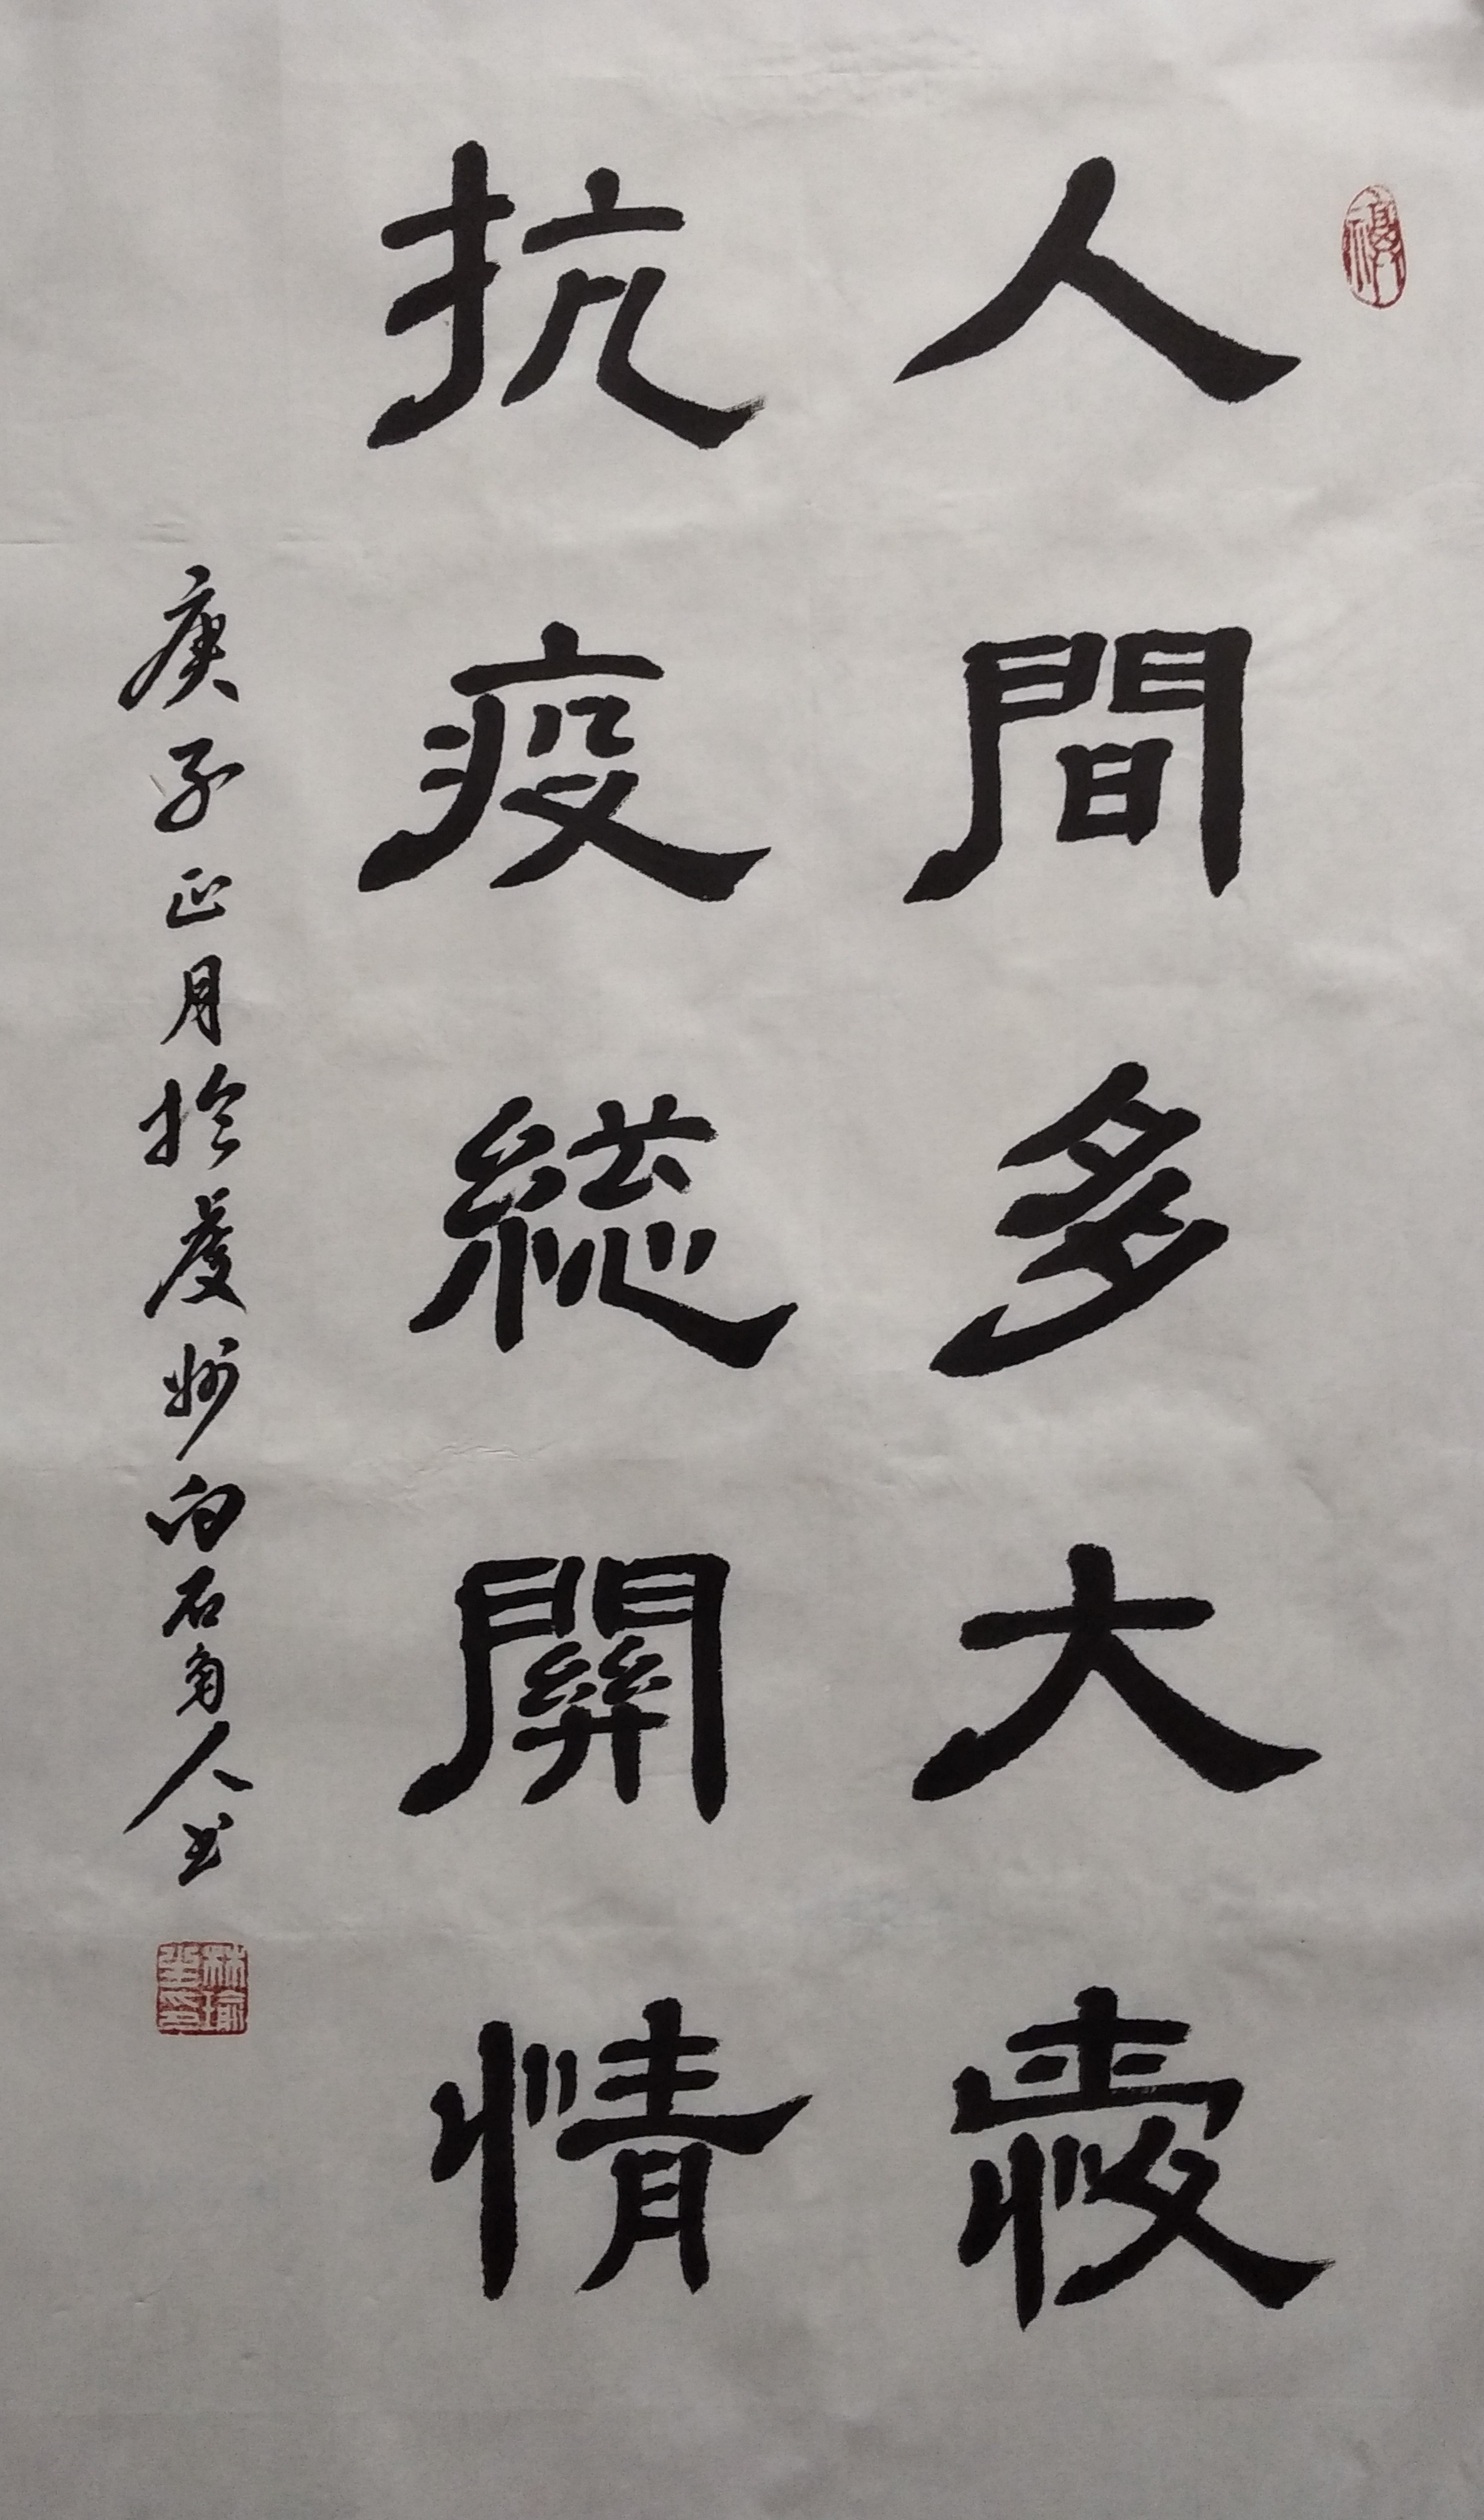 人間多大愛
抗疫総關情
庚子正月於虔州白石角人书
林瑜
印